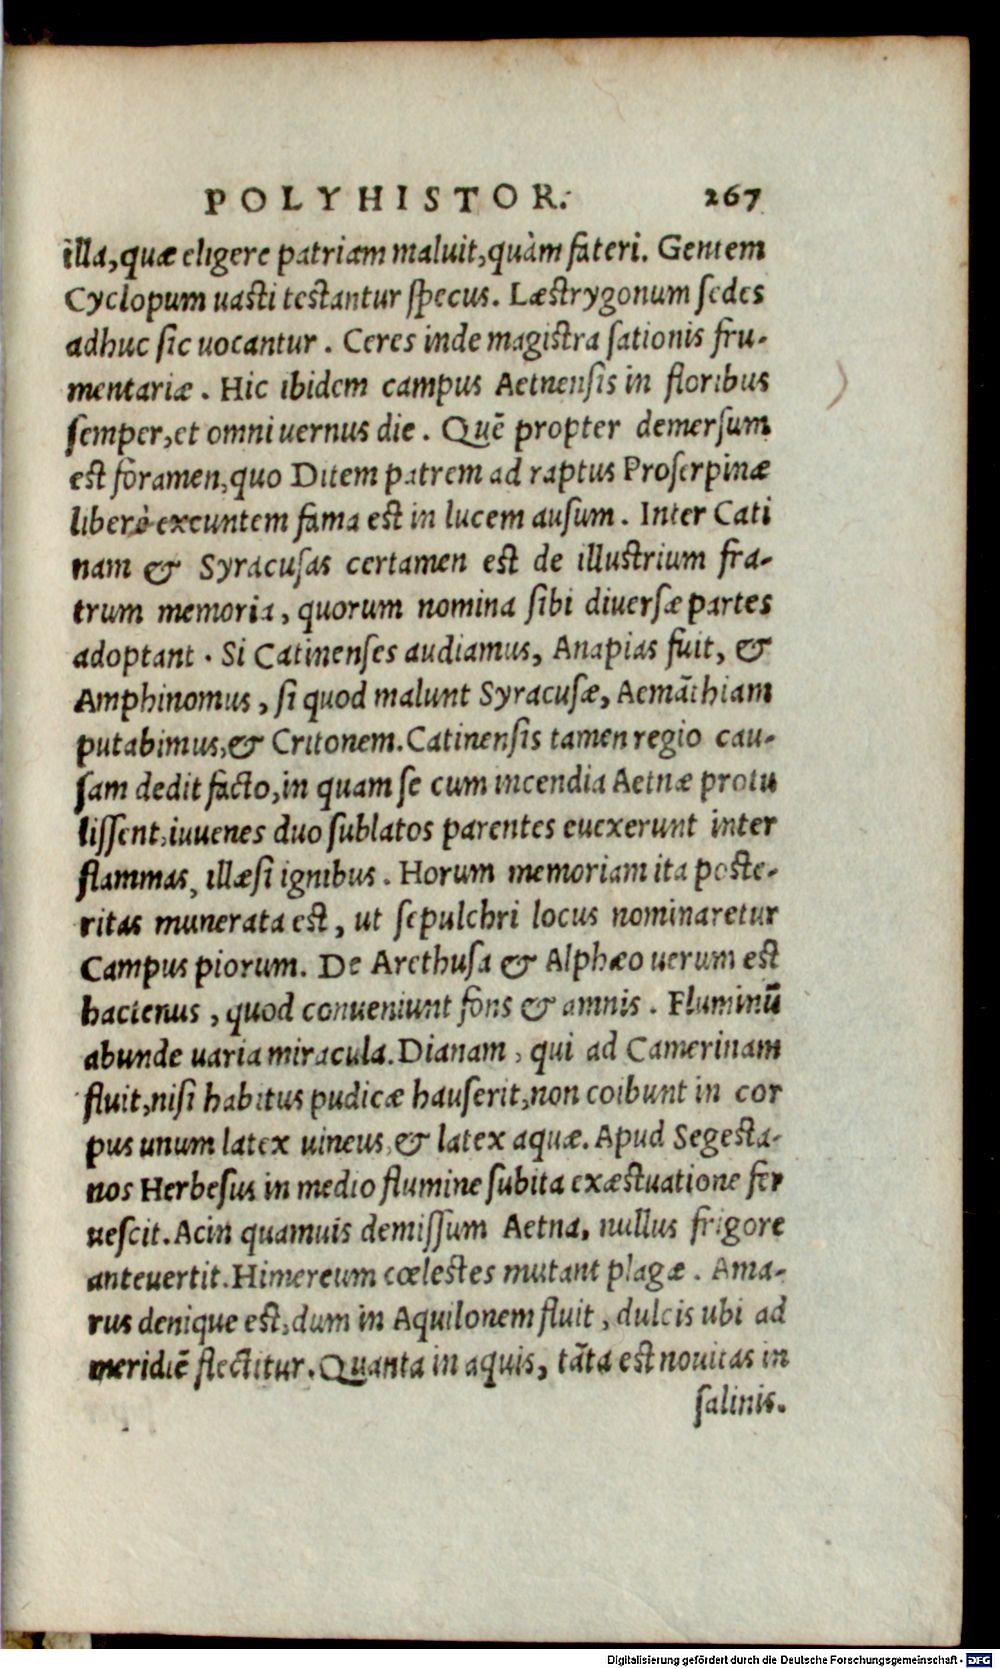 POLYHISTOR. 267
illa, quæ eligere patriam maluit, quàm fateri. Gentem
Cyclopum uasti testantur specus. Læstrygonum sedes
adhuc sic uocantur. Ceres inde magistra sationis fru-
mentariæ. Hic ibidem campus Aetnensis in floribus
semper, et omni uernus die. Quē propter demersum
est foramen, quo Ditem patrem ad raptus Proserpinæ
liberè exeuntem fama est in lucem ausum. Inter Cati
nam & Syracusas certamen est de illustrium fra-
trum memoria, quorum nomina sibi diuersæ partes
adoptant. Si Catinenses audiamus, Anapias fuit, &
Amphinomus, si quod malunt Syracusæ, Aemāthiam
putabimus, & Critonem. Catinensis tamen regio cau-
sam dedit facto, in quam se cum incendia Aetnæ protu
lissent, iuuenes duo sublatos parentes euexerunt inter
flammas, illæsi ignibus. Horum memoriam ita poste-
ritas munerata est, ut sepulchri locus nominaretur
Campus piorum. De Arethusa & Alphæo uerum est
hactenus, quod conueniunt fons & amnis. Fluminū
abunde uaria miracula. Dianam, qui ad Camerinam
fluit, nisi habitus pudicæ hauserit, non coibunt in cor
pus unum latex uineus, & latex aquæ. Apud Segesta-
nos Herbesus in medio flumine subita exæstuatione fer
uescit. Acin quamuis demissum Aetna, nullus frigore
anteuertit. Himereum cœlestes mutant plagæ. Ama-
rus denique est, dum in Aquilonem fluit, dulcis ubi ad
meridiē flectitur. Quanta in aquis, tāta est nouitas in
salinis.
Digitalisierung gefördert durch die Deutsche Forschungsgemeinschaft - DFG